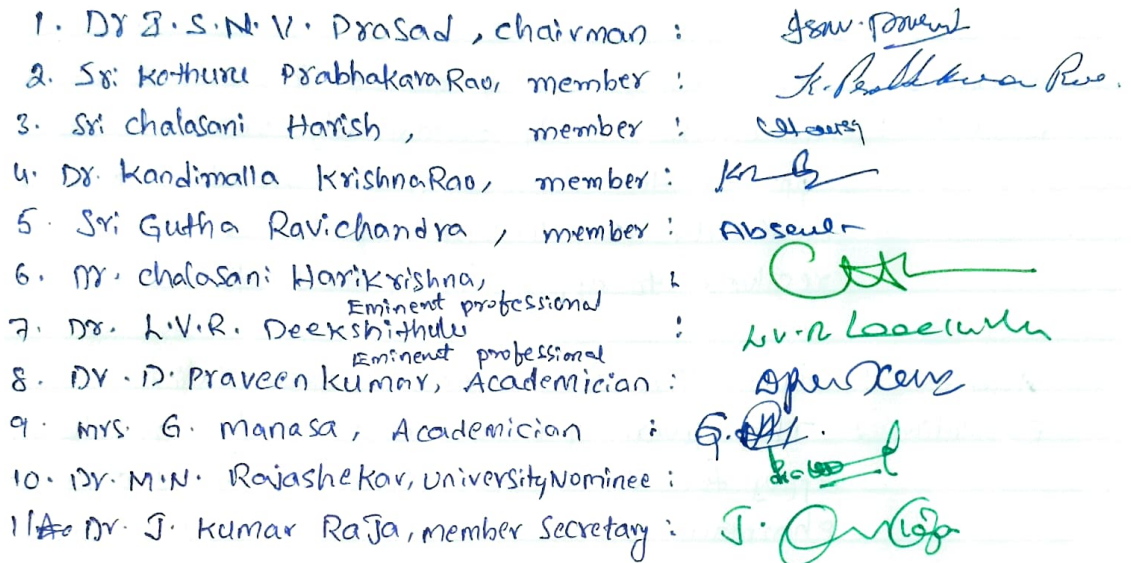 1. Dr J.S.N.V. Prasad, chairman :
2. Sri Kothuru Prabhakara Rao, member : K. Prabhakara Rao.
3. Sri chalasani Harish, member :
4. Dr. Kandimalla KrishnaRao, member :
5. Sri Gutha Ravichandra, member : Absent
6. Dr. chalasani Harikrishna, :
Eminent professional
7. Dr. L.V.R. Deekshithulu :
Eminent professional
8. Dr. D. Praveen kumar, Academician :
9. Mrs. G. Manasa, Academician : G.
10. Dr. M.N. Rajashekar, University Nominee :
11 Dr. J. Kumar RaJa, member Secretary : J.